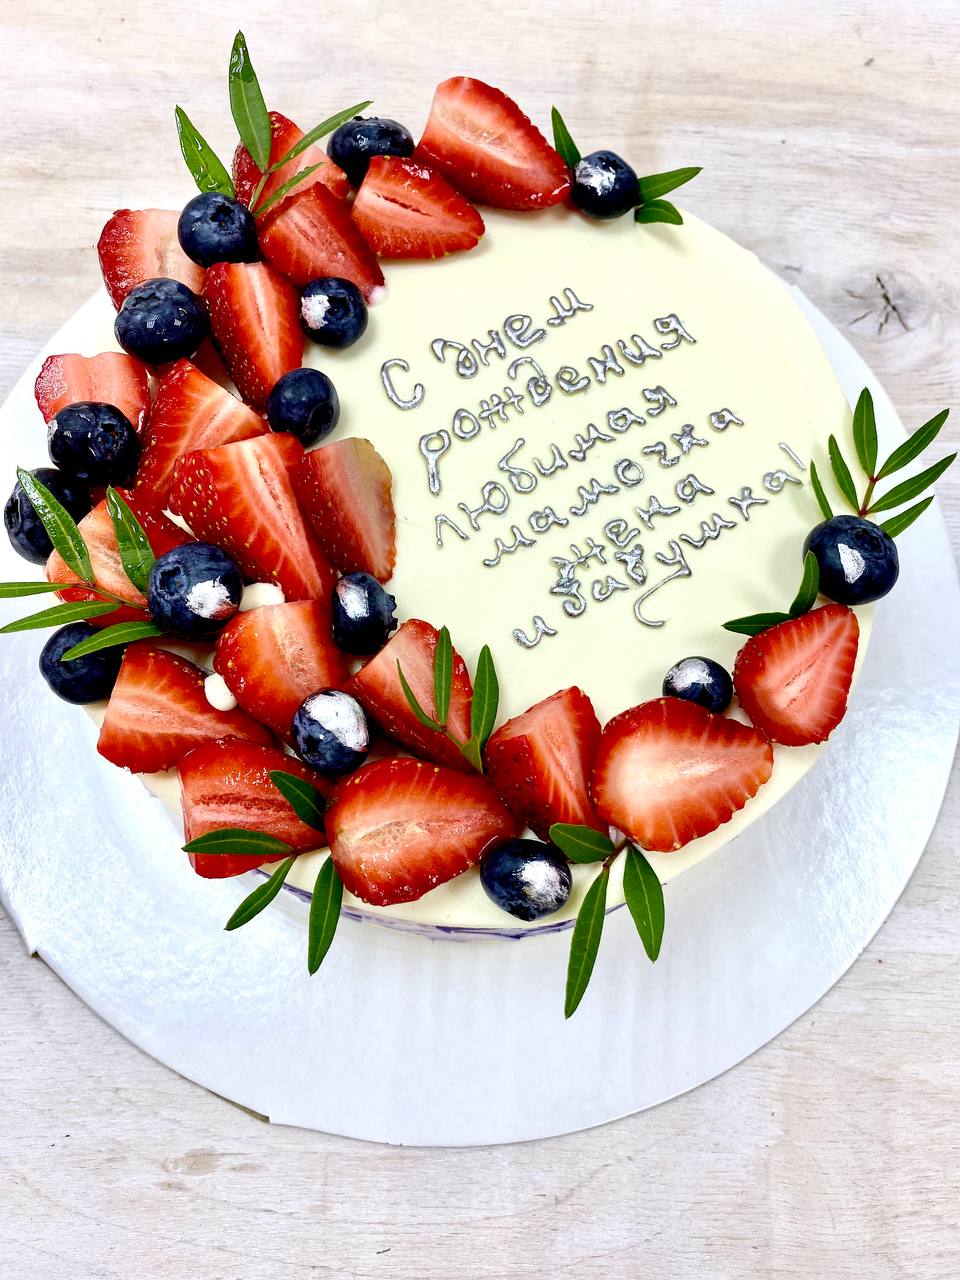 С днем
рождения
любимая
мамочка
жена
и бабушка!